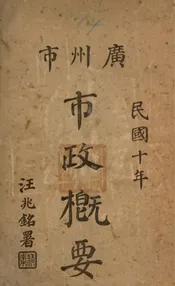 廣州市
民國十年
市政概要
汪兆銘署